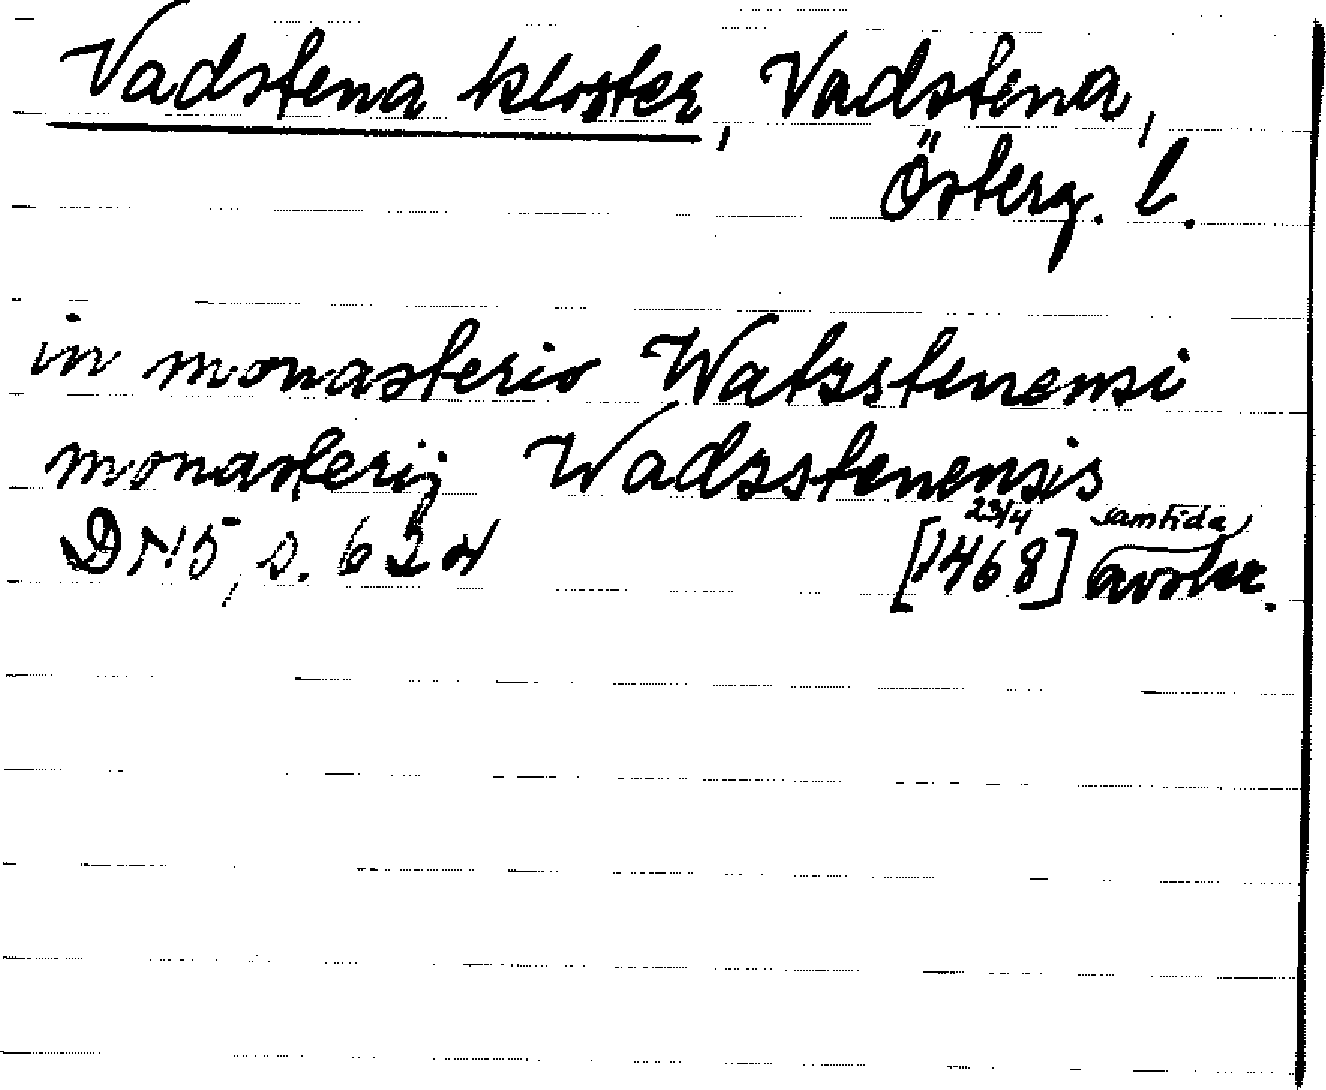 Vadstena kloster, Vadstena,
Österg. l.
in monasterio Watzstenensi
monasterij Wadzstenensis
DN5, s. 624
23/4 samtida
[1468] avskr.